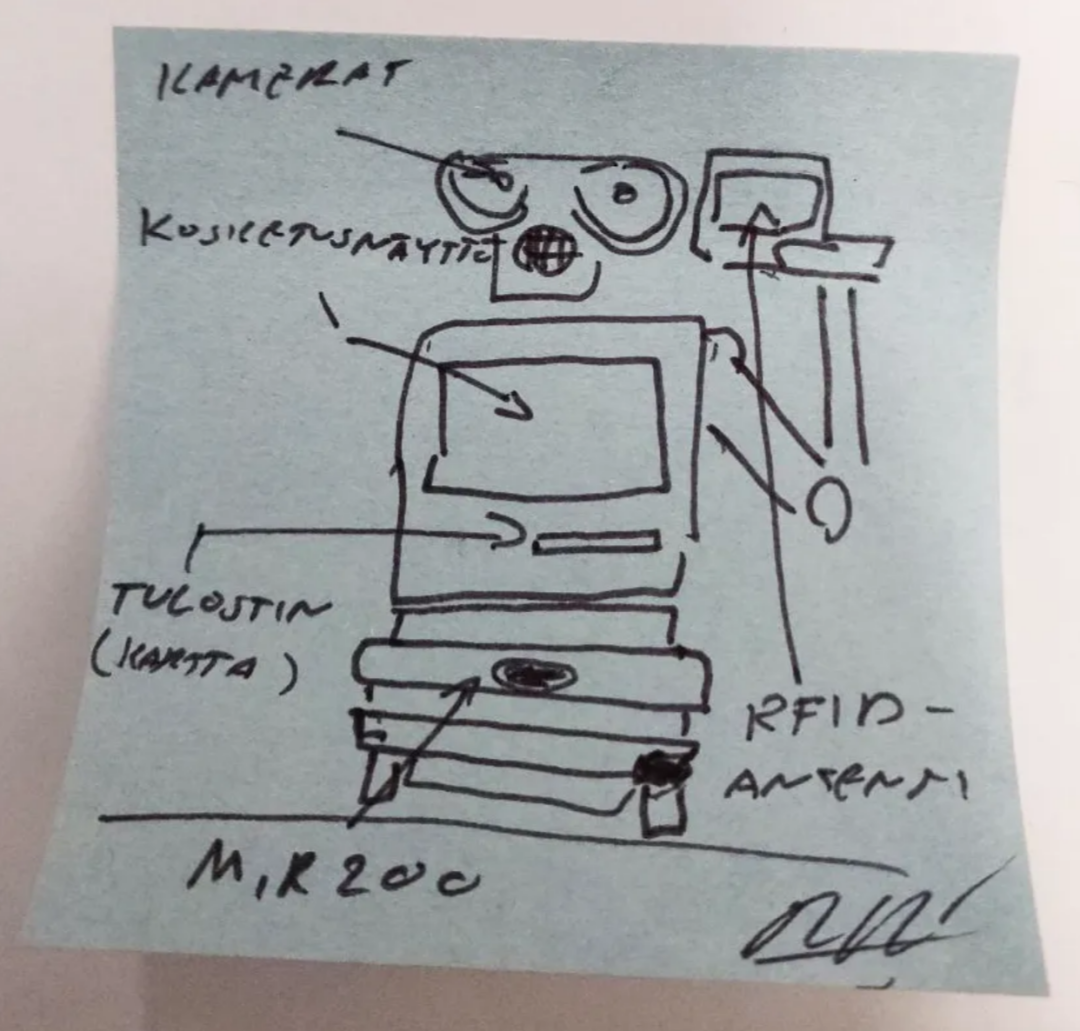 KAMERAT
KOSKETUSNÄYTTÖ
TULOSTIN
(KARTTA)
RFID-
ANTENNI
MiR 200